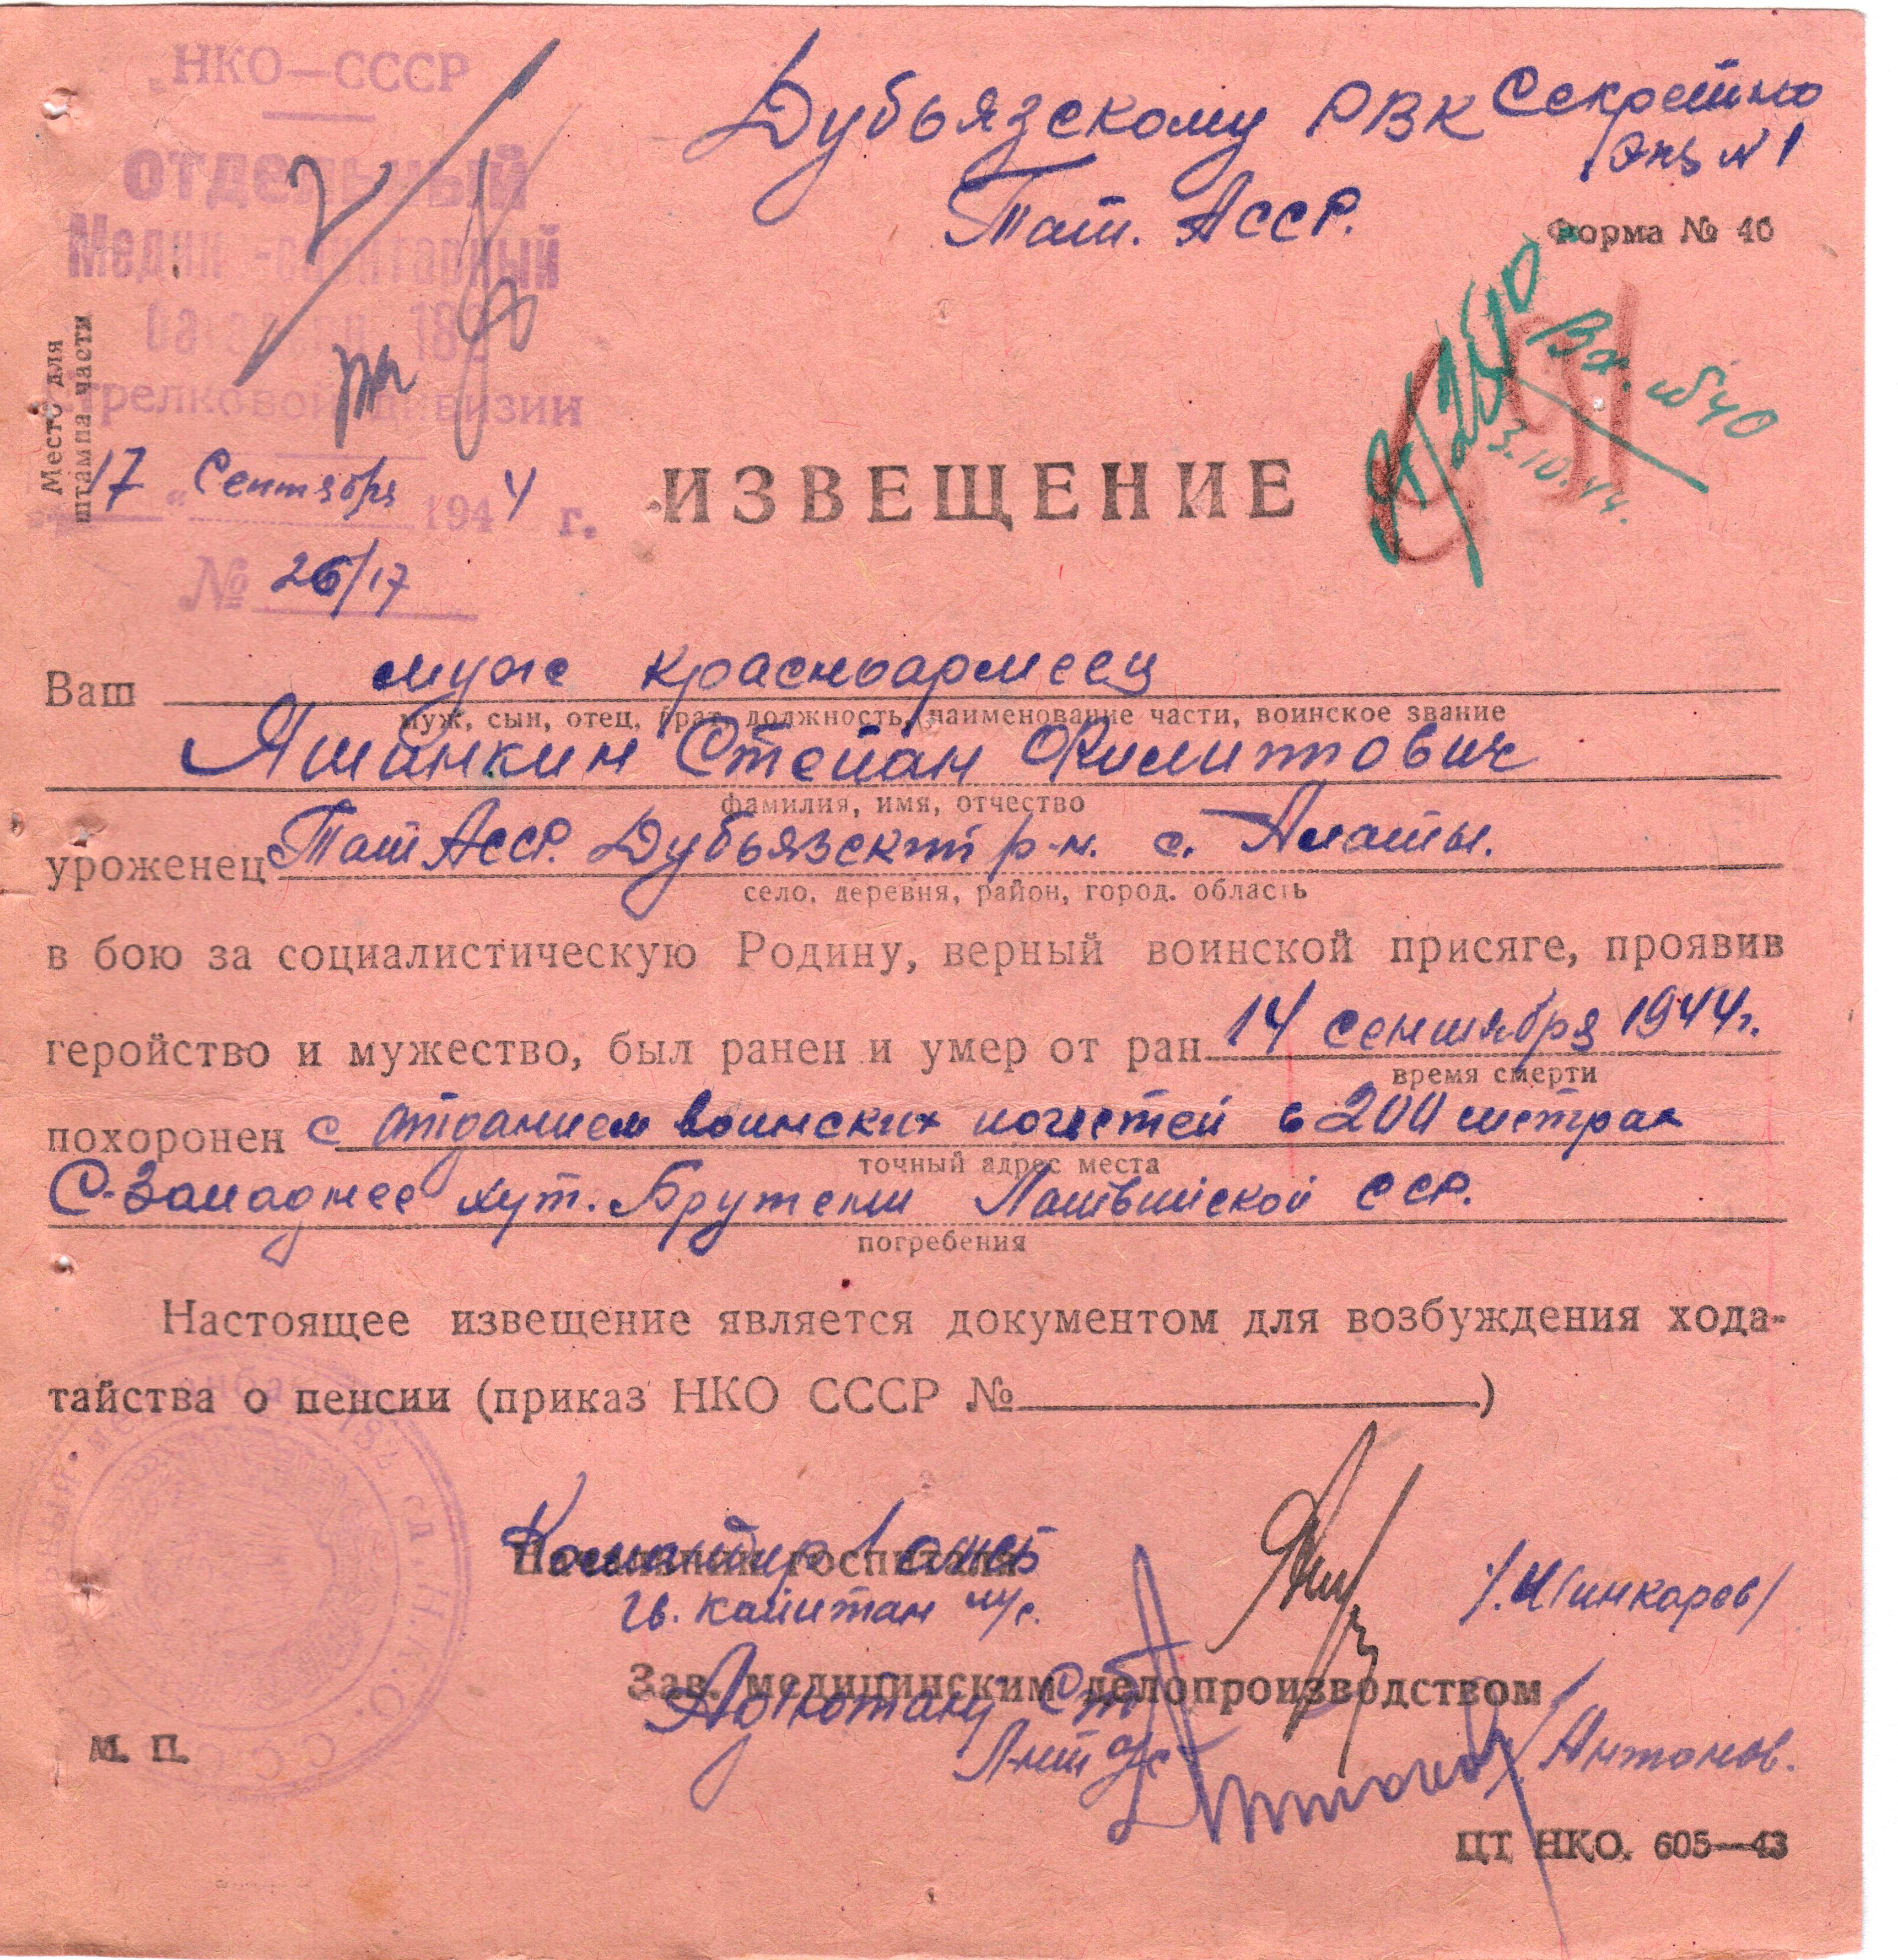 „НКО—СССР
отдельный
Медик -санитарный
батальон 182
стрелковой дивизии
Место для
штампа части
17 „ Сентября 1944 г.
№ 26/17
Дубьязскому РВК
Тат. АССР.
Секретно
Экз № 1
Форма № 46
Вх. 
3.10.44.
ИЗВЕЩЕНИЕ
Ваш муж красноармеец
муж, сын, отец, брат, должность, наименование части, воинское звание
Яшанкин Степан Филиппович
фамилия, имя, отчество
уроженец Тат АССР. Дубьязский р-н. с. Алаты.
село, деревня, район, город. область
в бою за социалистическую Родину, верный воинской присяге, проявив
геройство и мужество, был ранен и умер от ран 14 сентября 1944г.
время смерти
похоронен с отданием воинских почестей в 200 метрах
точный адрес места
С-Западнее хут. Брутени Латвийской ССР.
погребения
Настоящее извещение является документом для возбуждения хода-
тайства о пенсии (приказ НКО СССР № )
Командир осмб
Начальник госпиталя
гв. капитан м/с. /Шинкарев/
Зав. медицинским делопроизводством
Адъютант Ст
Л-нт а/с /Антонов.
М. П.
ЦТ НКО. 605—43